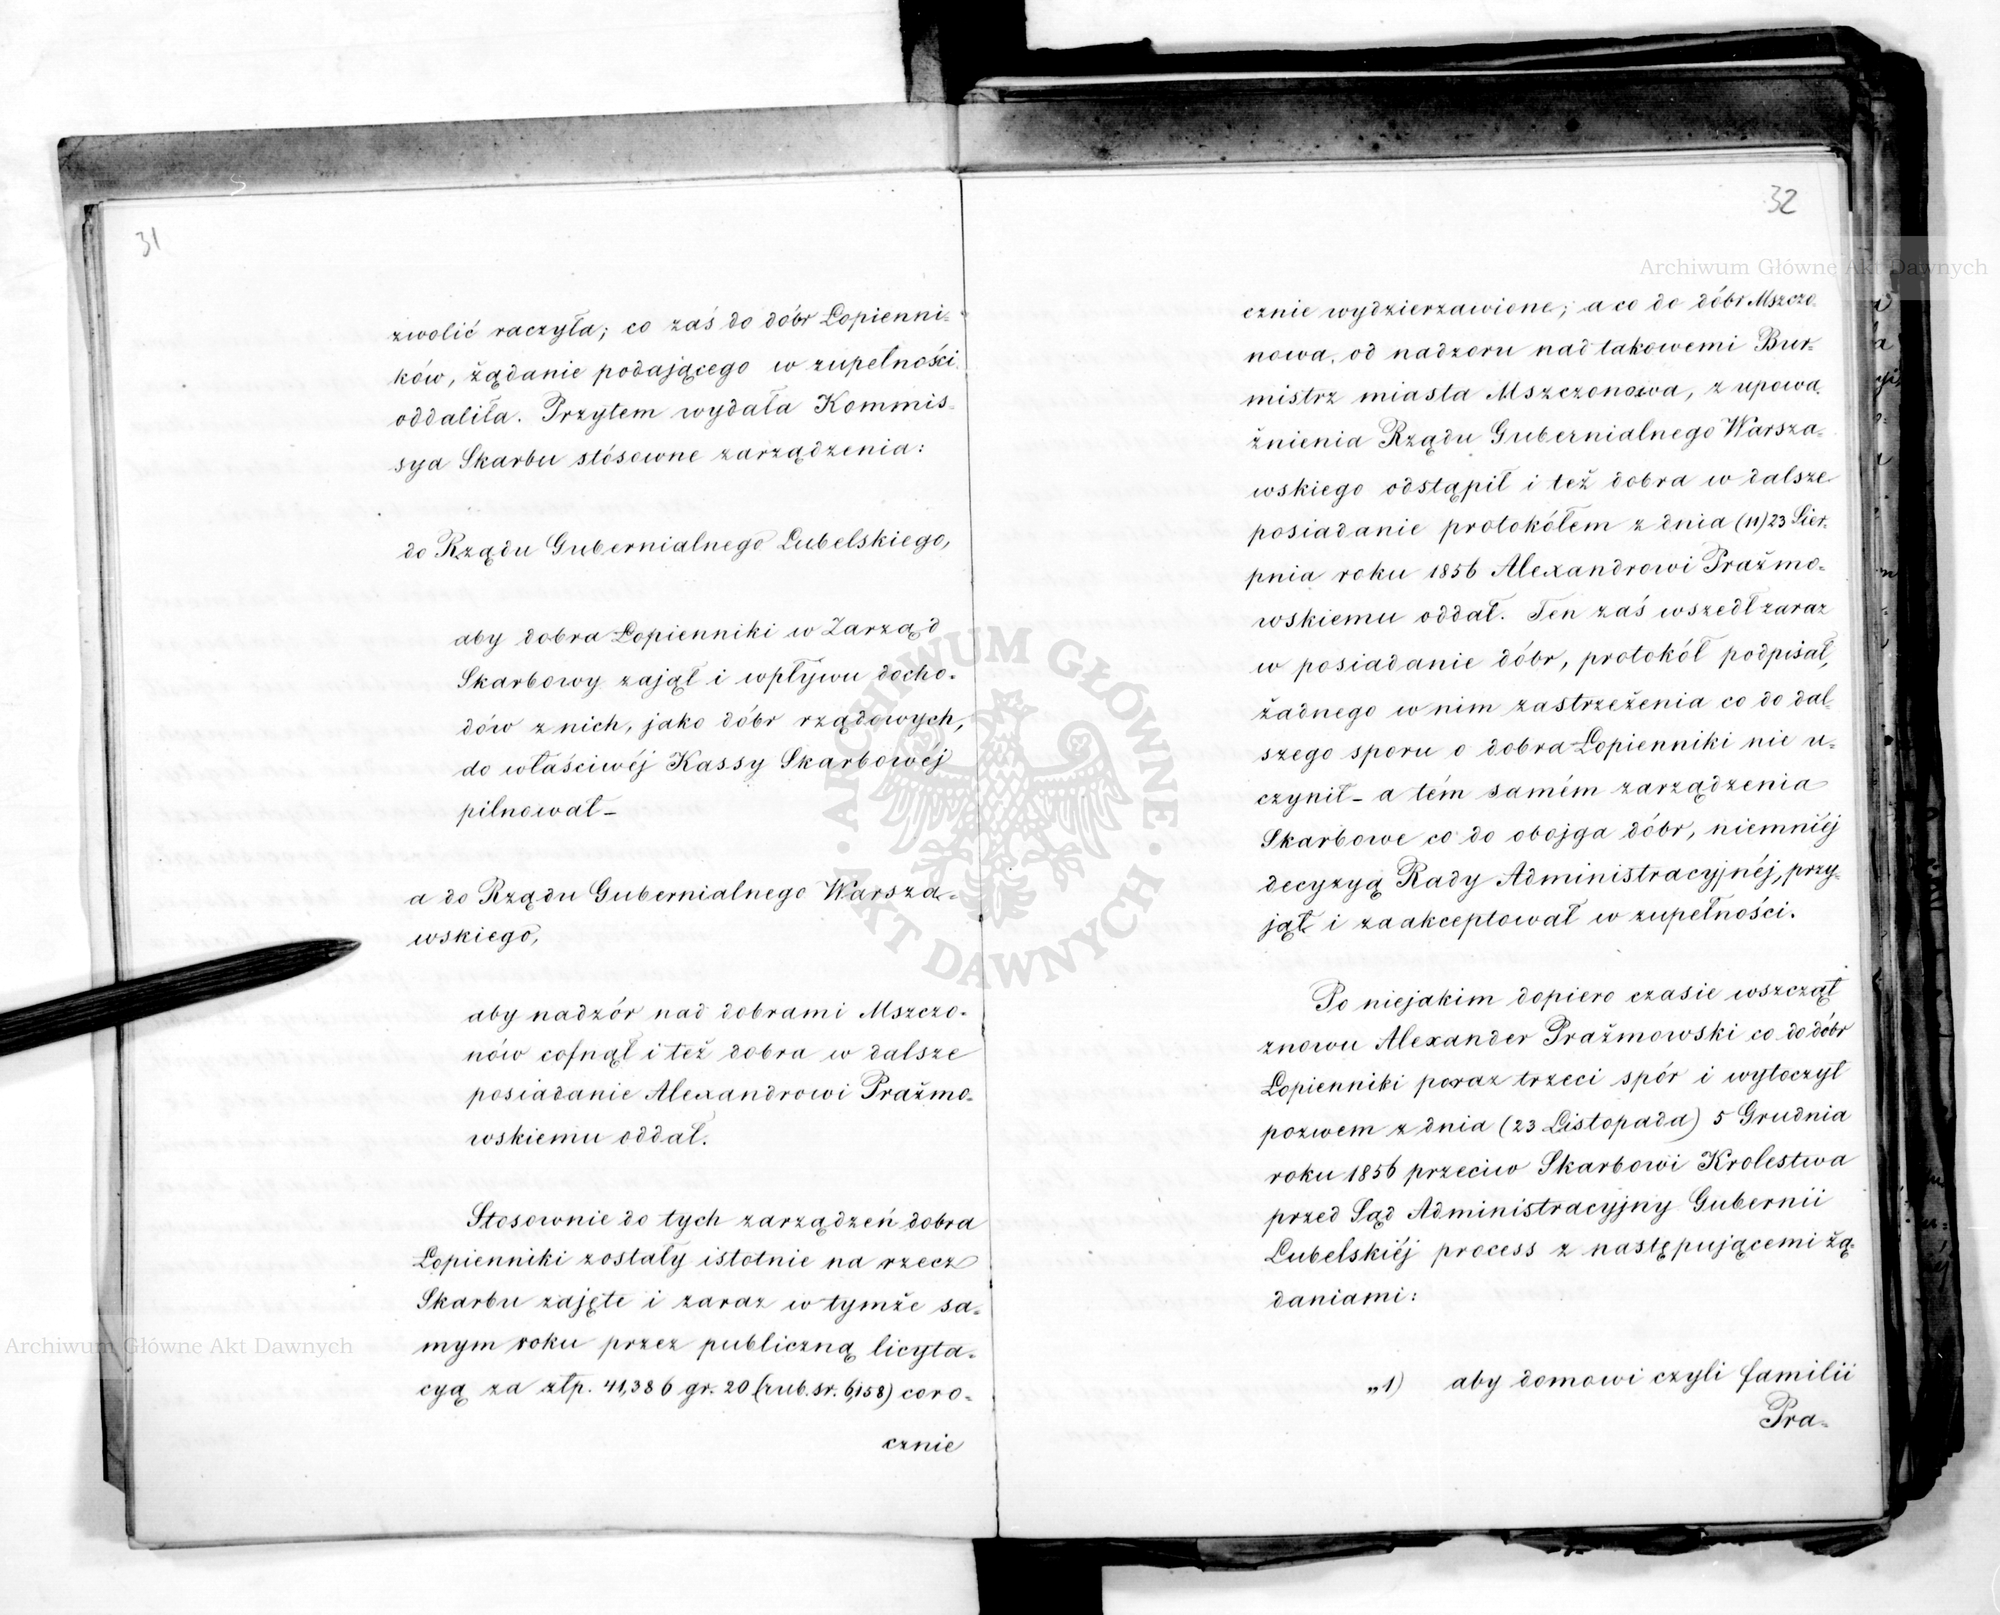 31
zwolić raczyła; co zaś do dóbr Łopienni-
ków, żądanie podającego w zupełności
oddaliła. Przytem wydała Kommis-
sya Skarbu stósowne zarządzenia:
do Rządu Gubernialnego Lubelskiego,
aby dobra Łopienniki w Zarząd
Skarbowy zajął i wpływu docho-
dów z nich, jako dóbr rządowych,
do właściwéj Kassy Skarbowéj
pilnował –
a do Rządu Gubernialnego Warsza-
wskiego,
aby nadzór nad dobrami Mszczo-
nów cofnął i też dobra w dalsze
posiadanie Alexandrowi Prażmo-
wskiemu oddał.
Stosownie do tych zarządzeń dobra
Łopienniki zostały istotnie na rzecz
Skarbu zajęte i zaraz w tymże sa-
mym roku przez publiczną licyta-
cyą za złp. 41,386 gr. 20 (rub. sr. 6,158) coro-
cznie
32
cznie wydzierzawione; a co do dóbr Mszczo
nowa, od nadzoru nad takowemi Bur-
mistrz miasta Mszczonowa, z upowa-
żnienia Rządu Gubernialnego Warsza-
wskiego odstąpił i też dobra w dalsze
posiadanie protokółem z dnia (11) 23 Sier-
pnia roku 1856 Alexandrowi Prażmo-
wskiemu oddał. Ten zaś wszedł zaraz
w posiadanie dóbr, protokół podpisał,
żadnego w nim zastrzeżenia co do dal-
szego sporu o dobra Łopienniki nie u-
czynił – a tém samém zarządzenia
Skarbowe co do obojga dóbr, niemniéj
decyzyą Rady Administracyjnéj, przy-
jął i zaakceptował w zupełności.
Po niejakim dopiero czasie wszczął
znowu Alexander Prażmowski co do dóbr
Łopienniki poraz trzeci spór i wytoczył
pozwem z dnia (23 Listopada) 5 Grudnia
roku 1856 przeciw Skarbowi Krolestwa
przed Sąd Administracyjny Gubernii
Lubelskiéj process z następującemi żą-
daniami:
„1) aby domowi czyli familii
Pra-
Archiwum Główne Akt Dawnych
Archiwum Główne Akt Dawnych
ARCHIWUM GŁÓWNE
AKT DAWNYCH